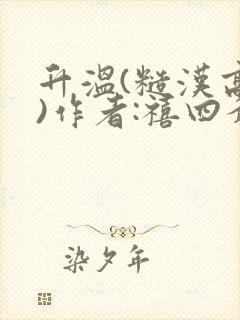 升温(糙漢高
)作者:禧四
染夕年